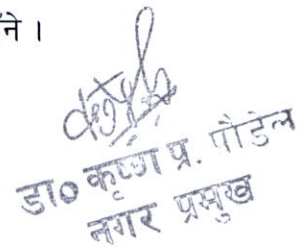 ने ।
डा० कृष्ण प्र. पौडेल
नगर प्रमुख